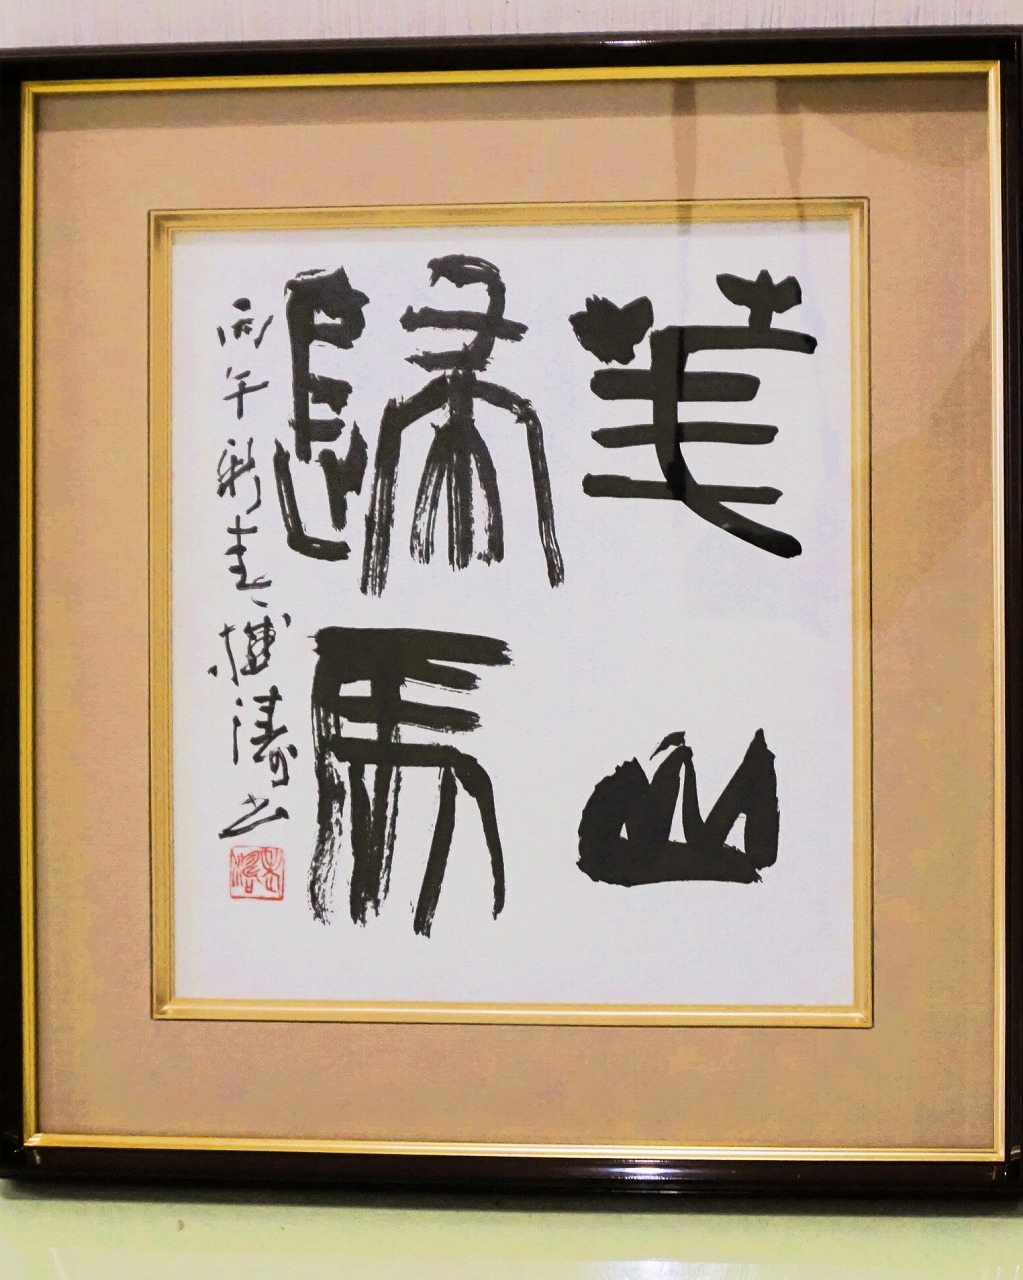 華山
歸馬
丙午新春濤书